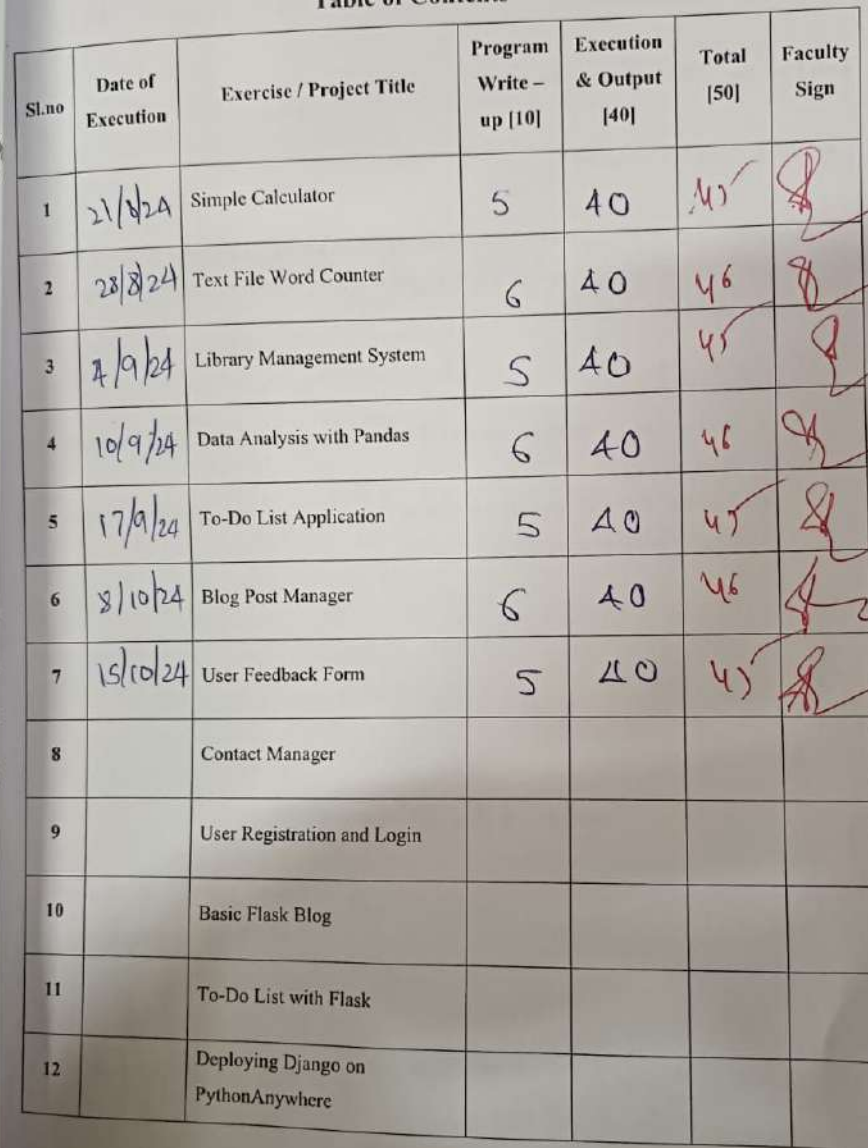 Table of Contents
Sl.no Date of Execution Exercise / Project Title Program Write – up [10] Execution & Output [40] Total [50] Faculty Sign
1 21/8/24 Simple Calculator 5 40 45
2 28/8/24 Text File Word Counter 6 40 46
3 /9/24 Library Management System 5 40 45
4 10/9/24 Data Analysis with Pandas 6 40 46
5 17/9/24 To-Do List Application 5 40 45
6 8/10/24 Blog Post Manager 6 40 46
7 15/10/24 User Feedback Form 5 40 45
8 Contact Manager
9 User Registration and Login
10 Basic Flask Blog
11 To-Do List with Flask
12 Deploying Django on
PythonAnywhere